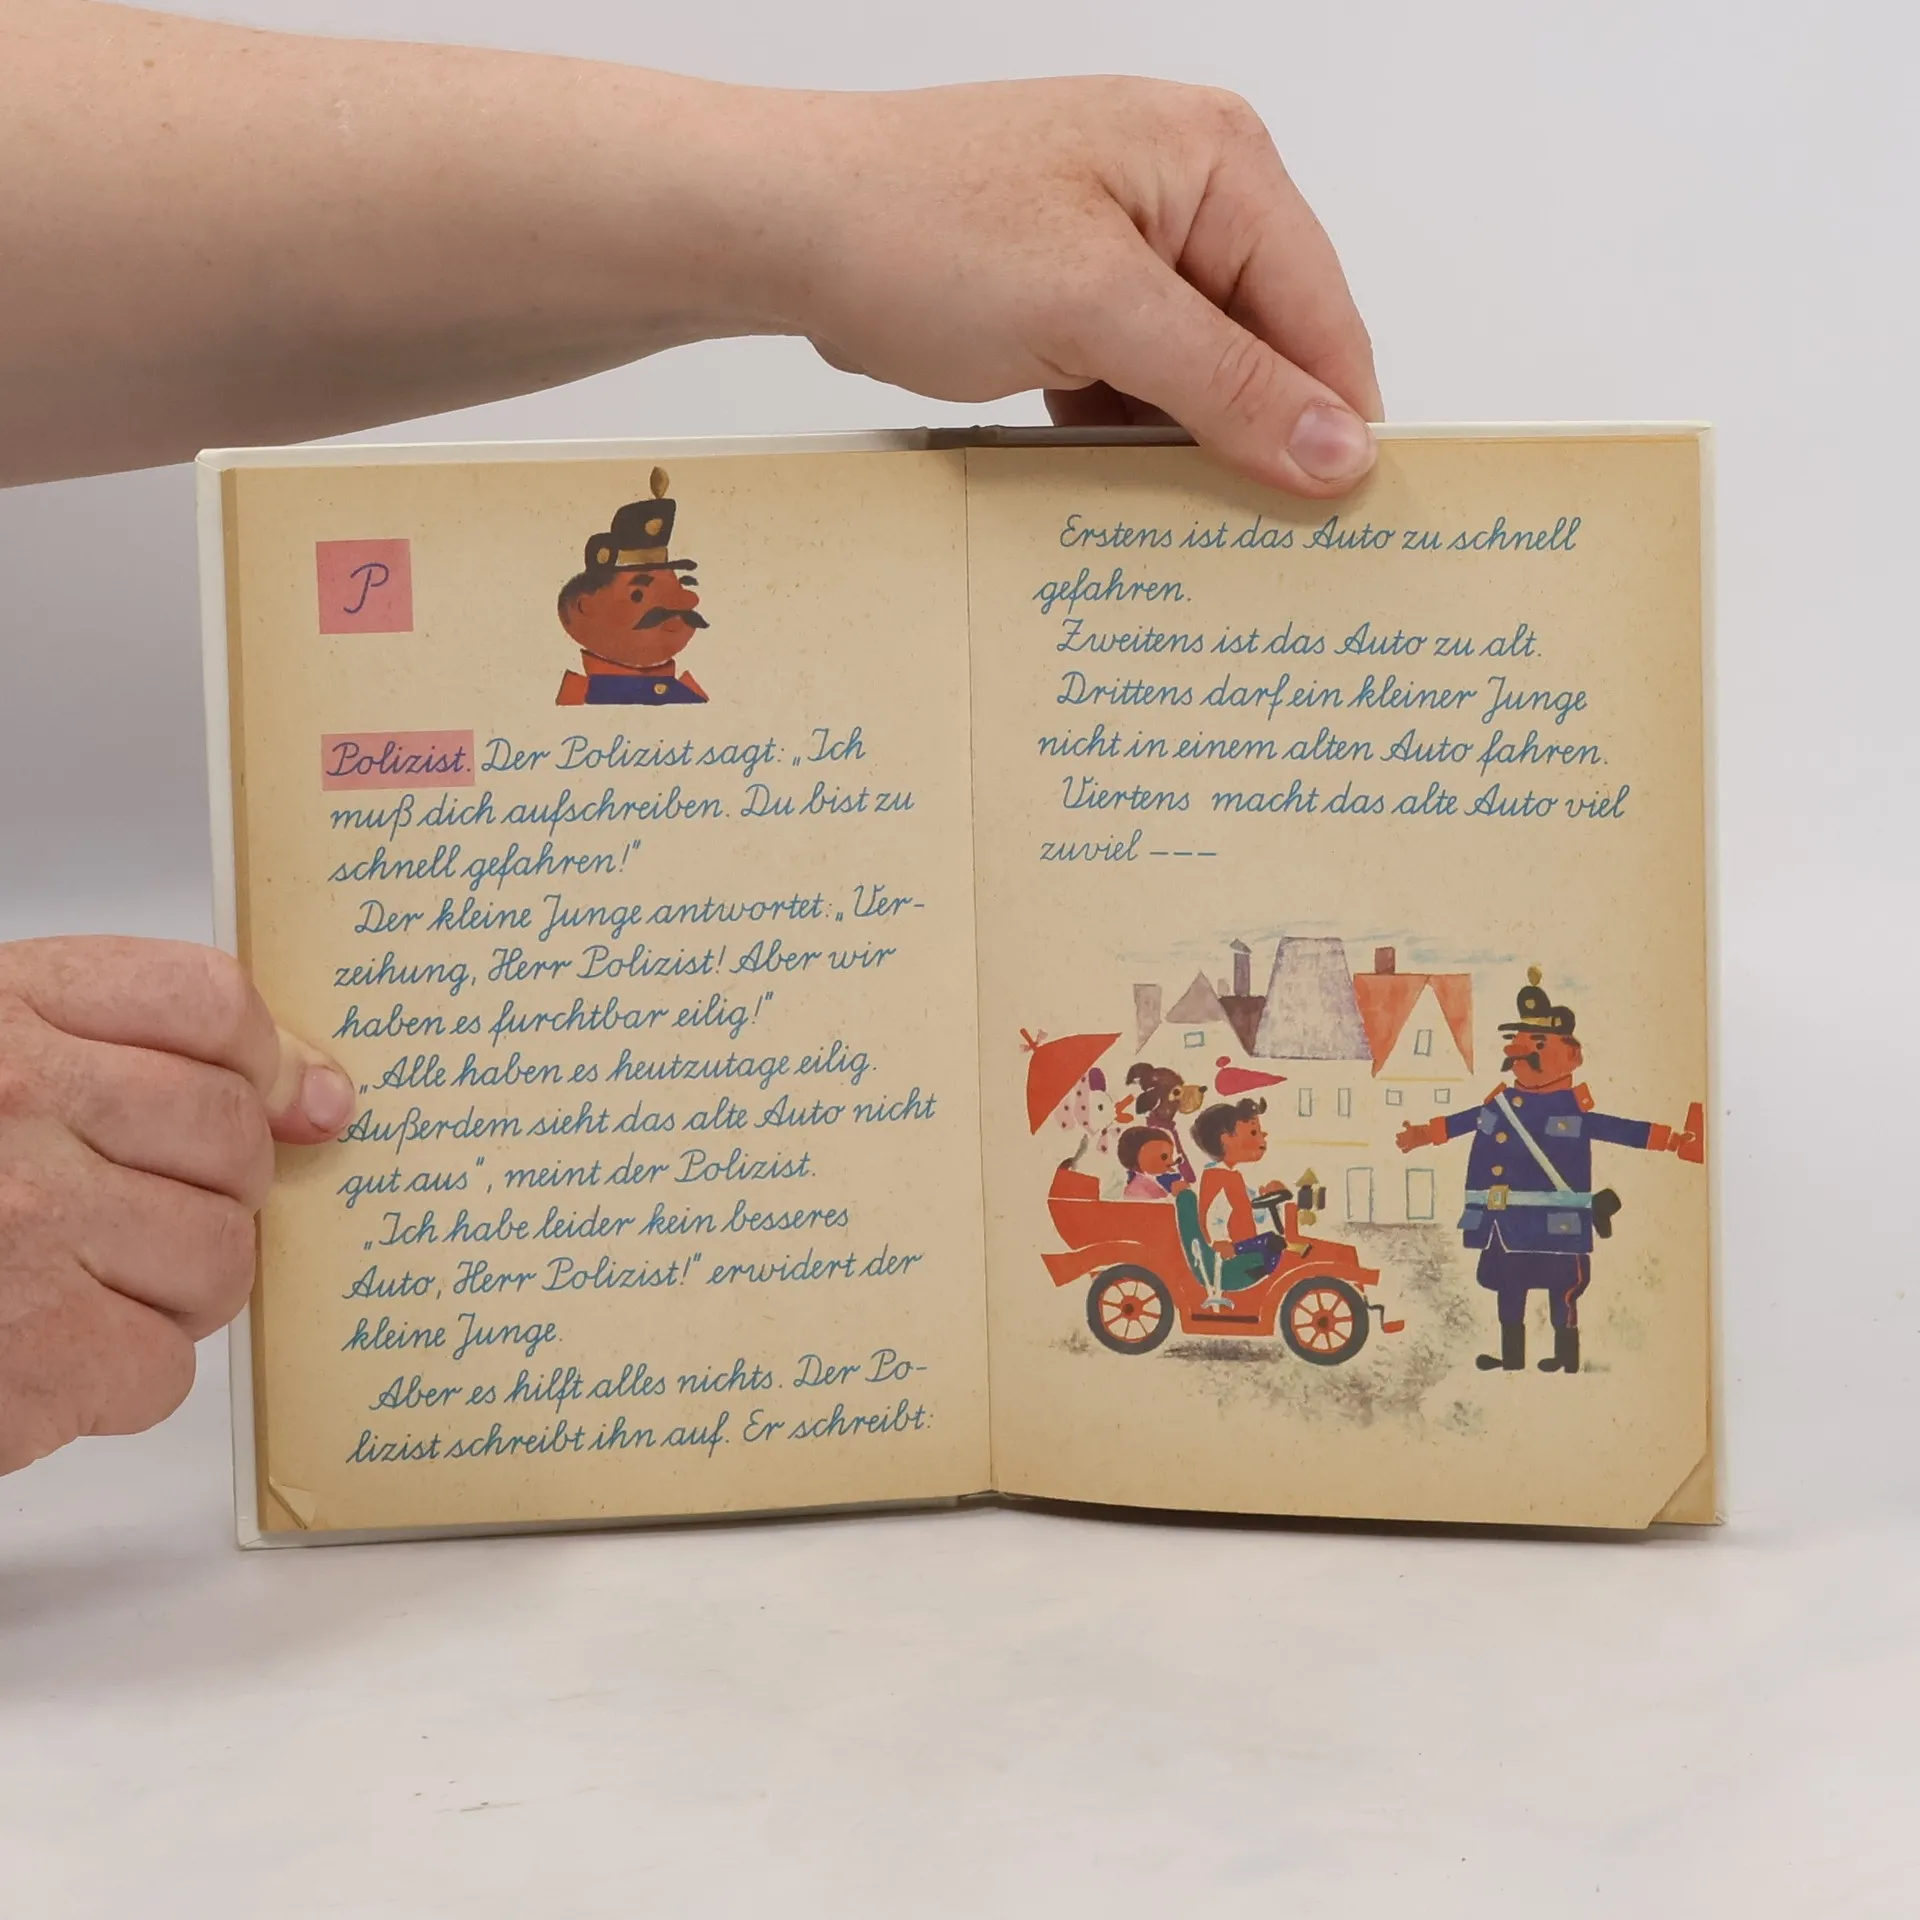 P
Polizist. Der Polizist sagt: „Ich
muß dich aufschreiben. Du bist zu
schnell gefahren!"
Der kleine Junge antwortet: „Ver-
zeihung, Herr Polizist! Aber wir
haben es furchtbar eilig!"
„Alle haben es heutzutage eilig.
Außerdem sieht das alte Auto nicht
gut aus", meint der Polizist.
„Ich habe leider kein besseres
Auto, Herr Polizist!" erwidert der
kleine Junge.
Aber es hilft alles nichts. Der Po-
lizist schreibt ihn auf. Er schreibt:
Erstens ist das Auto zu schnell
gefahren.
Zweitens ist das Auto zu alt.
Drittens darf ein kleiner Junge
nicht in einem alten Auto fahren.
Viertens macht das alte Auto viel
zuviel ---